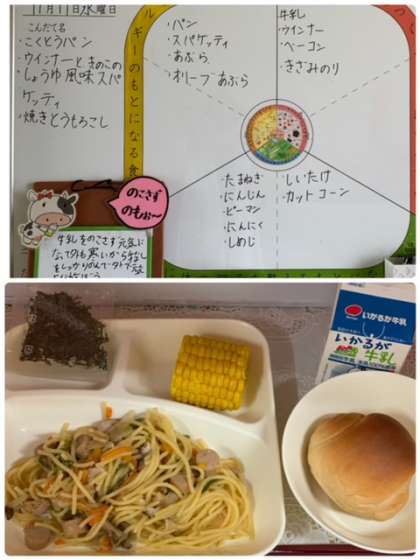 11月11日水曜日
こんだて名
・こくとうパン
・ウインナーときのこの
しょうゆ風味スパ
ゲッティ
・焼きとうもろこし
ルギーのもとになる食
・パン
・スパゲッティ
・あぶら
・オリーブあぶら
・牛乳
・ウインナー
・ベーコン
・きざみのり
・たまねぎ
・にんじん
・ピーマン
・にんにく
・しめじ
・しいたけ
・カットコーン
のこさず
のもぉ〜
牛乳をのこさず元気に
いかるが牛乳
いかるが
牛乳